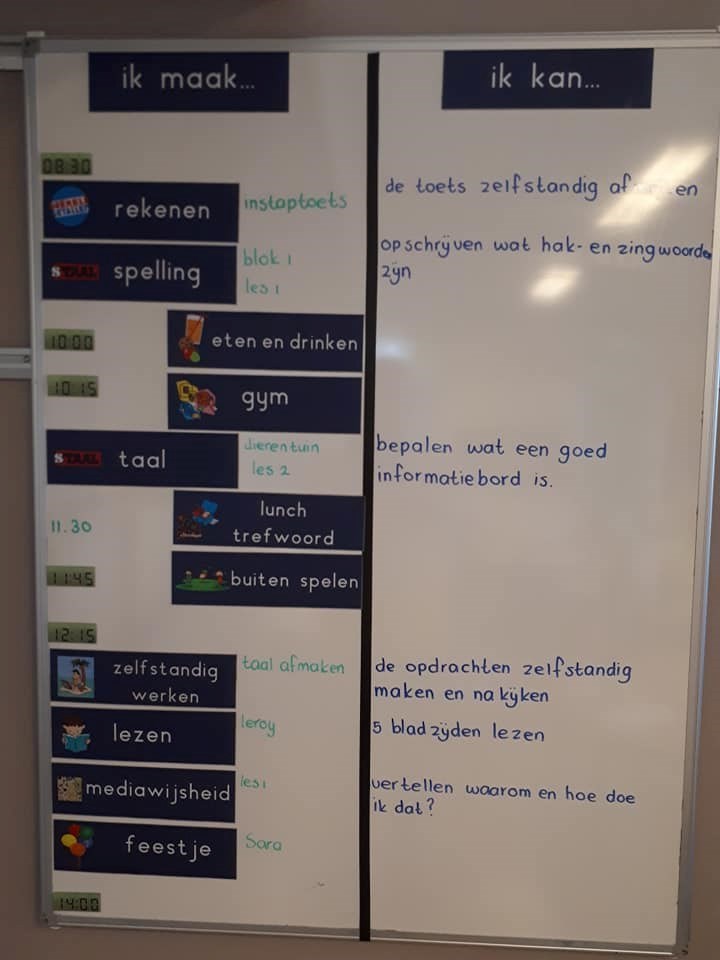 ik maak...
ik kan...
08:30
rekenen
instaptoets
de toets zelfstandig
spelling
blok 1
les 1
opschrijven wat hak- en zingwoorden
zijn
STAAL
10:00
eten en drinken
10:15
gym
STAAL
taal
dierentuin
les 2
bepalen wat een goed
informatiebord is.
11.30
lunch
trefwoord
11:45
buiten spelen
12:15
zelfstandig
werken
taal afmaken
de opdrachten zelfstandig
maken en nakijken
lezen
leroy
5 bladzijden lezen
mediawijsheid
les 1
vertellen waarom en hoe doe
ik dat?
feestje
Sara
14:00